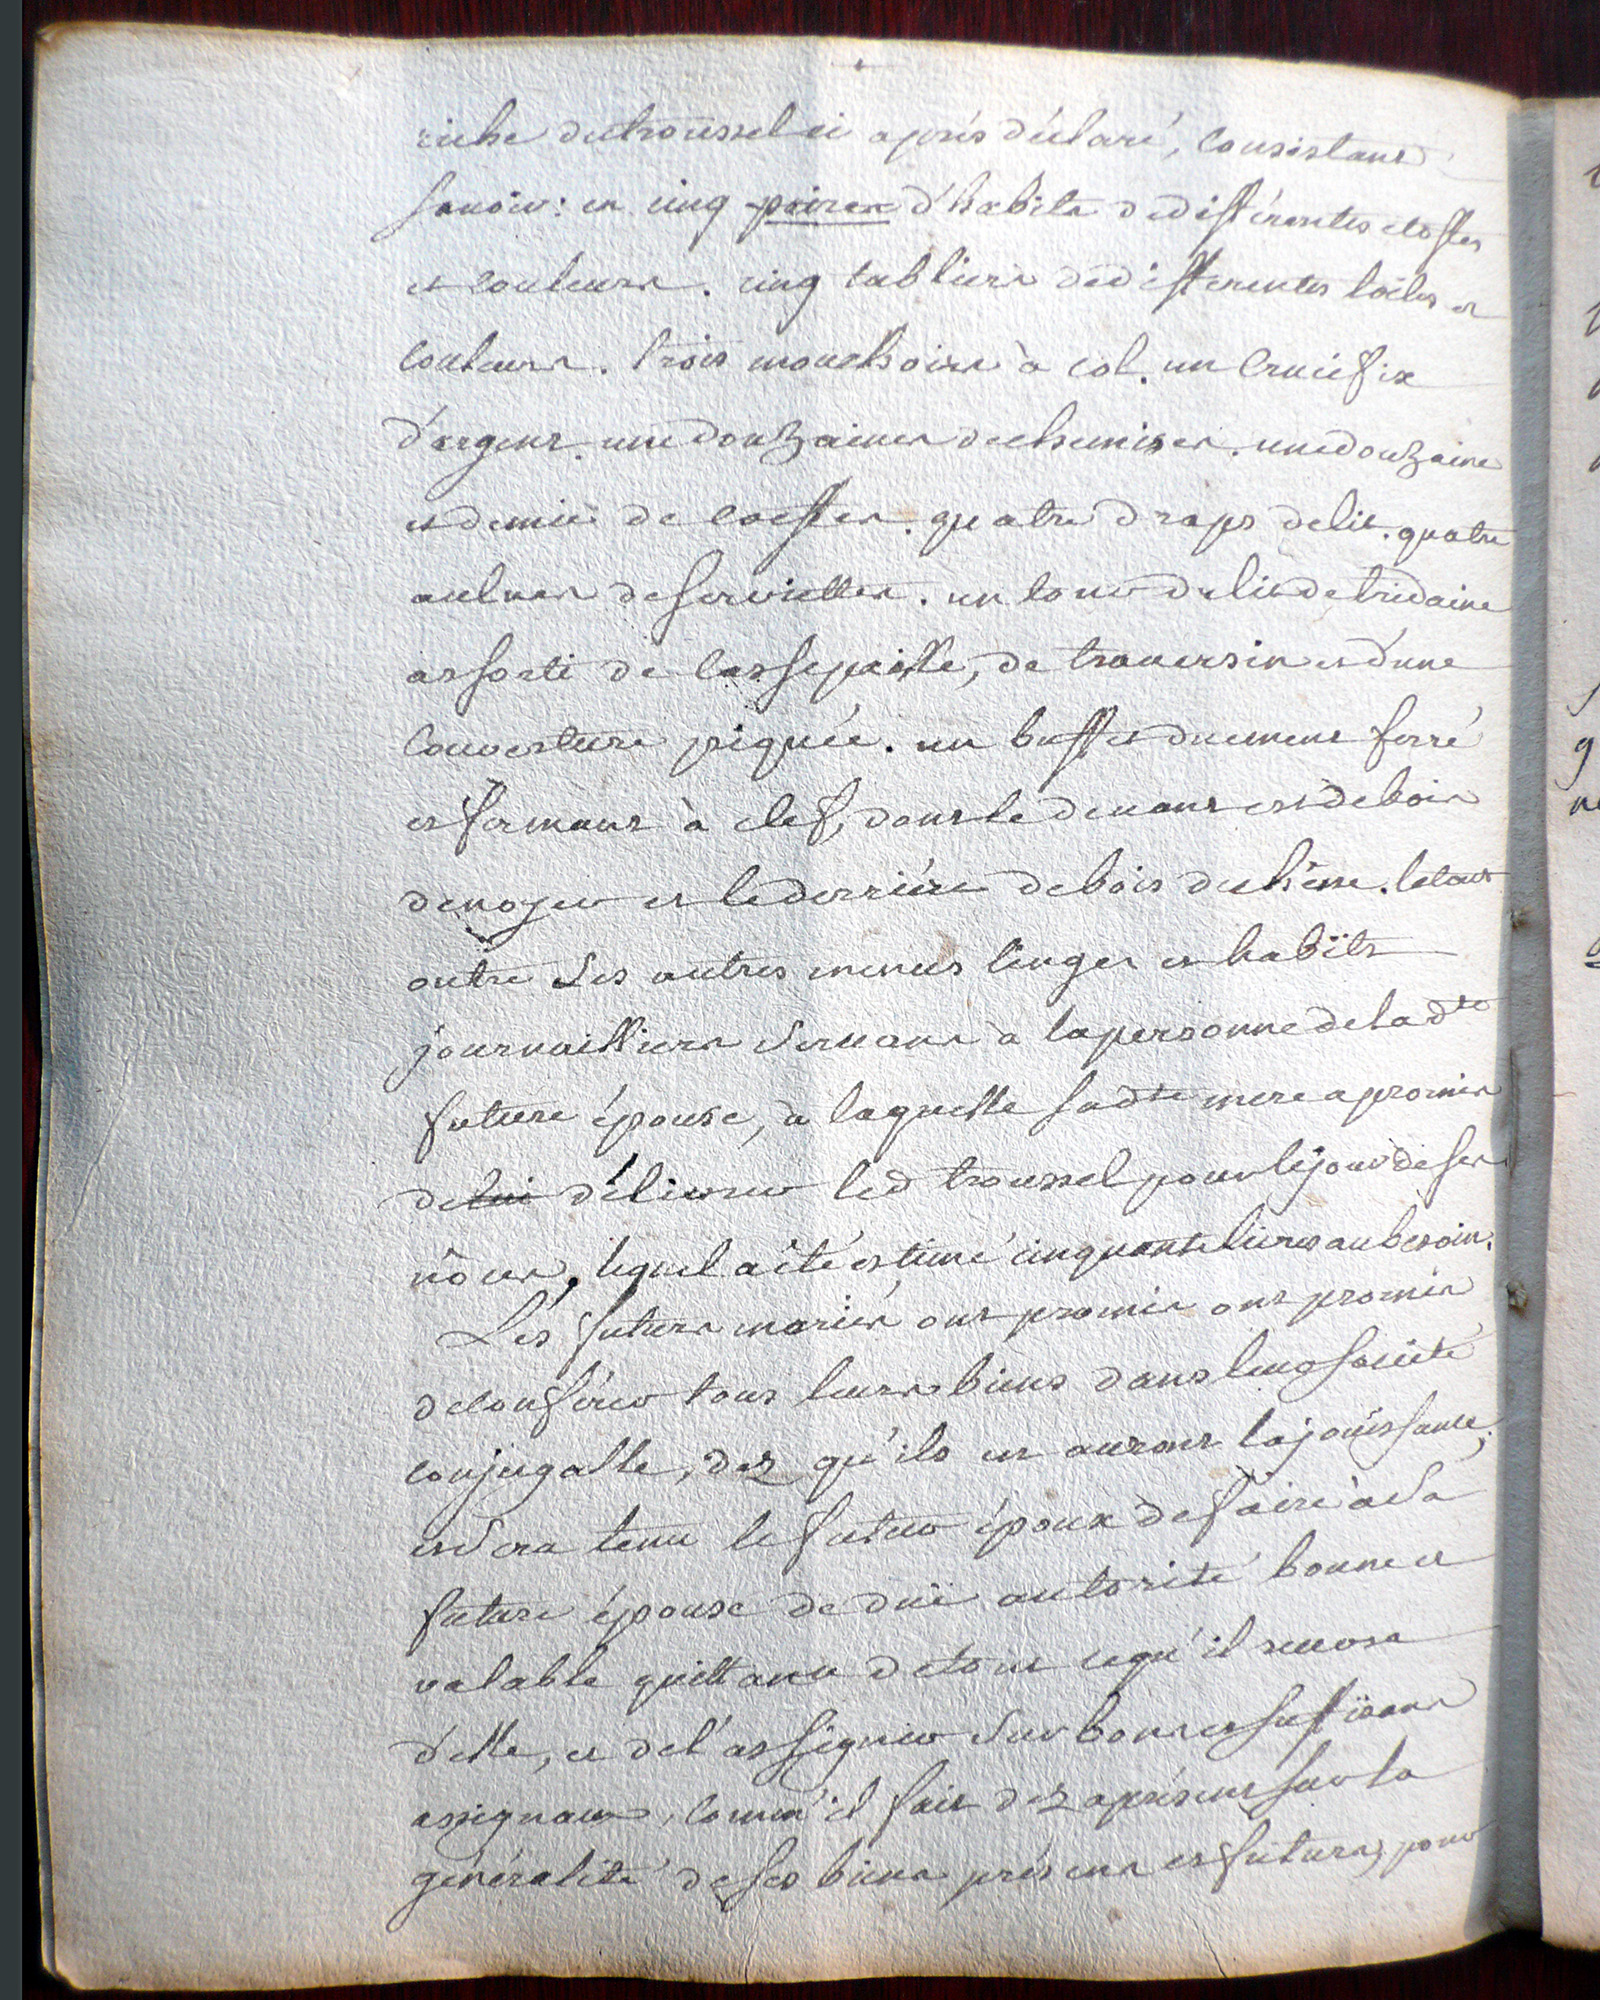 riche du troussel ci après déclaré, Consistant
sçavoir: en cinq paires d'habits de différentes etoffes
et Couleurs. cinq tabliers de differentes toiles et
Couleurs. trois mouchoirs à col. un Crucifix
d'argent. une douzaines de chemises. une douzaine
et demie de coeffes. quatre draps de lit. quatre
aulnes de serviettes. un tour de lit de tridaine
assorti de Cassepaille, de traversin et d'une
Couverture piquée. un buffet duement ferré
et fermant à clef, dont le devant est de bois
de noyer et le derriére de bois de chêne. le tout
outre les autres menus linges et habits
journailliers servans à la personne de lad.te
future épouse, à laquelle sad.te mere a promis
de lui délivrer led troussel pour le jour de ses
nôces, lequel a été estimé cinquante livres au besoin.
Lés futurs mariés ont promis ont promis
de conférer tous leurs biens dans leur société
conjugalle, dez qu'ils en auront la jouissance;
et sera tenu le futur époux de faire à sa
future épouse de duë autorité bonne et
valable quittance de tout ce qu'il recevra
d'elle, et de l'assigner sur bons et suffisans
assignaux, comm'il fait dez aprésent sur la
généralité de ses biens présens et futurs, pour